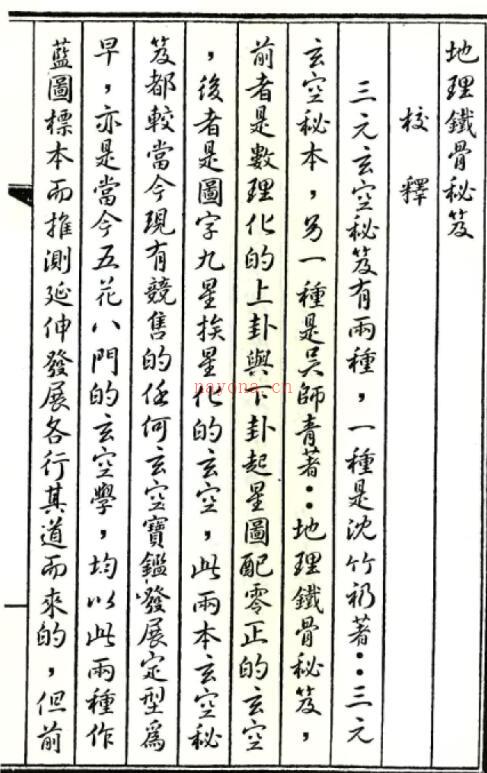 地理鐵骨秘笈
校釋
三元玄空秘笈有兩種，一種是沈竹礽著：三元
玄空秘本，另一種是吴師青著：地理鐵骨秘笈，
前者是數理化的上卦與下卦起星圖配零正的玄空
，後者是圖字九星挨星化的玄空，此兩本玄空秘
笈都較當今現有競售的任何玄空寶鑑發展定型為
早，亦是當今五花八門的玄空學，均以此兩種作
藍圖標本而推測延伸發展各行其道而來的，但前
nayona.cn